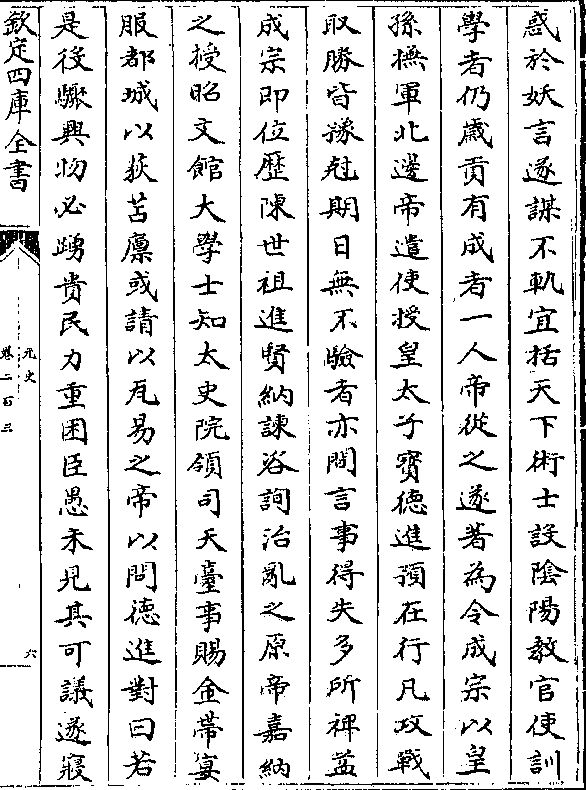 惑於妖言遂謀不軌宜括天下術士設陰陽教官使訓
學者仍歲貢有成者一人帝從之遂著為令成宗以皇
孫撫軍北邊帝遣使授皇太子寳德進預在行凡攻戰
取勝皆豫尅期日無不驗者亦間言事得失多所裨益
成宗即位歴陳世祖進賢納諫咨詢治亂之原帝嘉納
之授昭文館大學士知太史院領司天臺事賜金帶宴
服都城以荻苫廩或請以瓦易之帝以問德進對曰若
是役驟興物必踴貴民力重困臣愚未見其可議遂寢
欽定四庫全書
元史
卷二百三
六